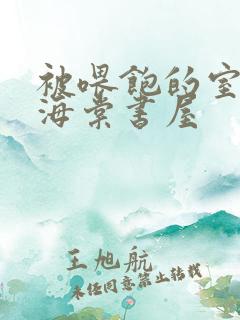 被喂饱的室
海棠书屋
王旭航
未经同意禁止转载